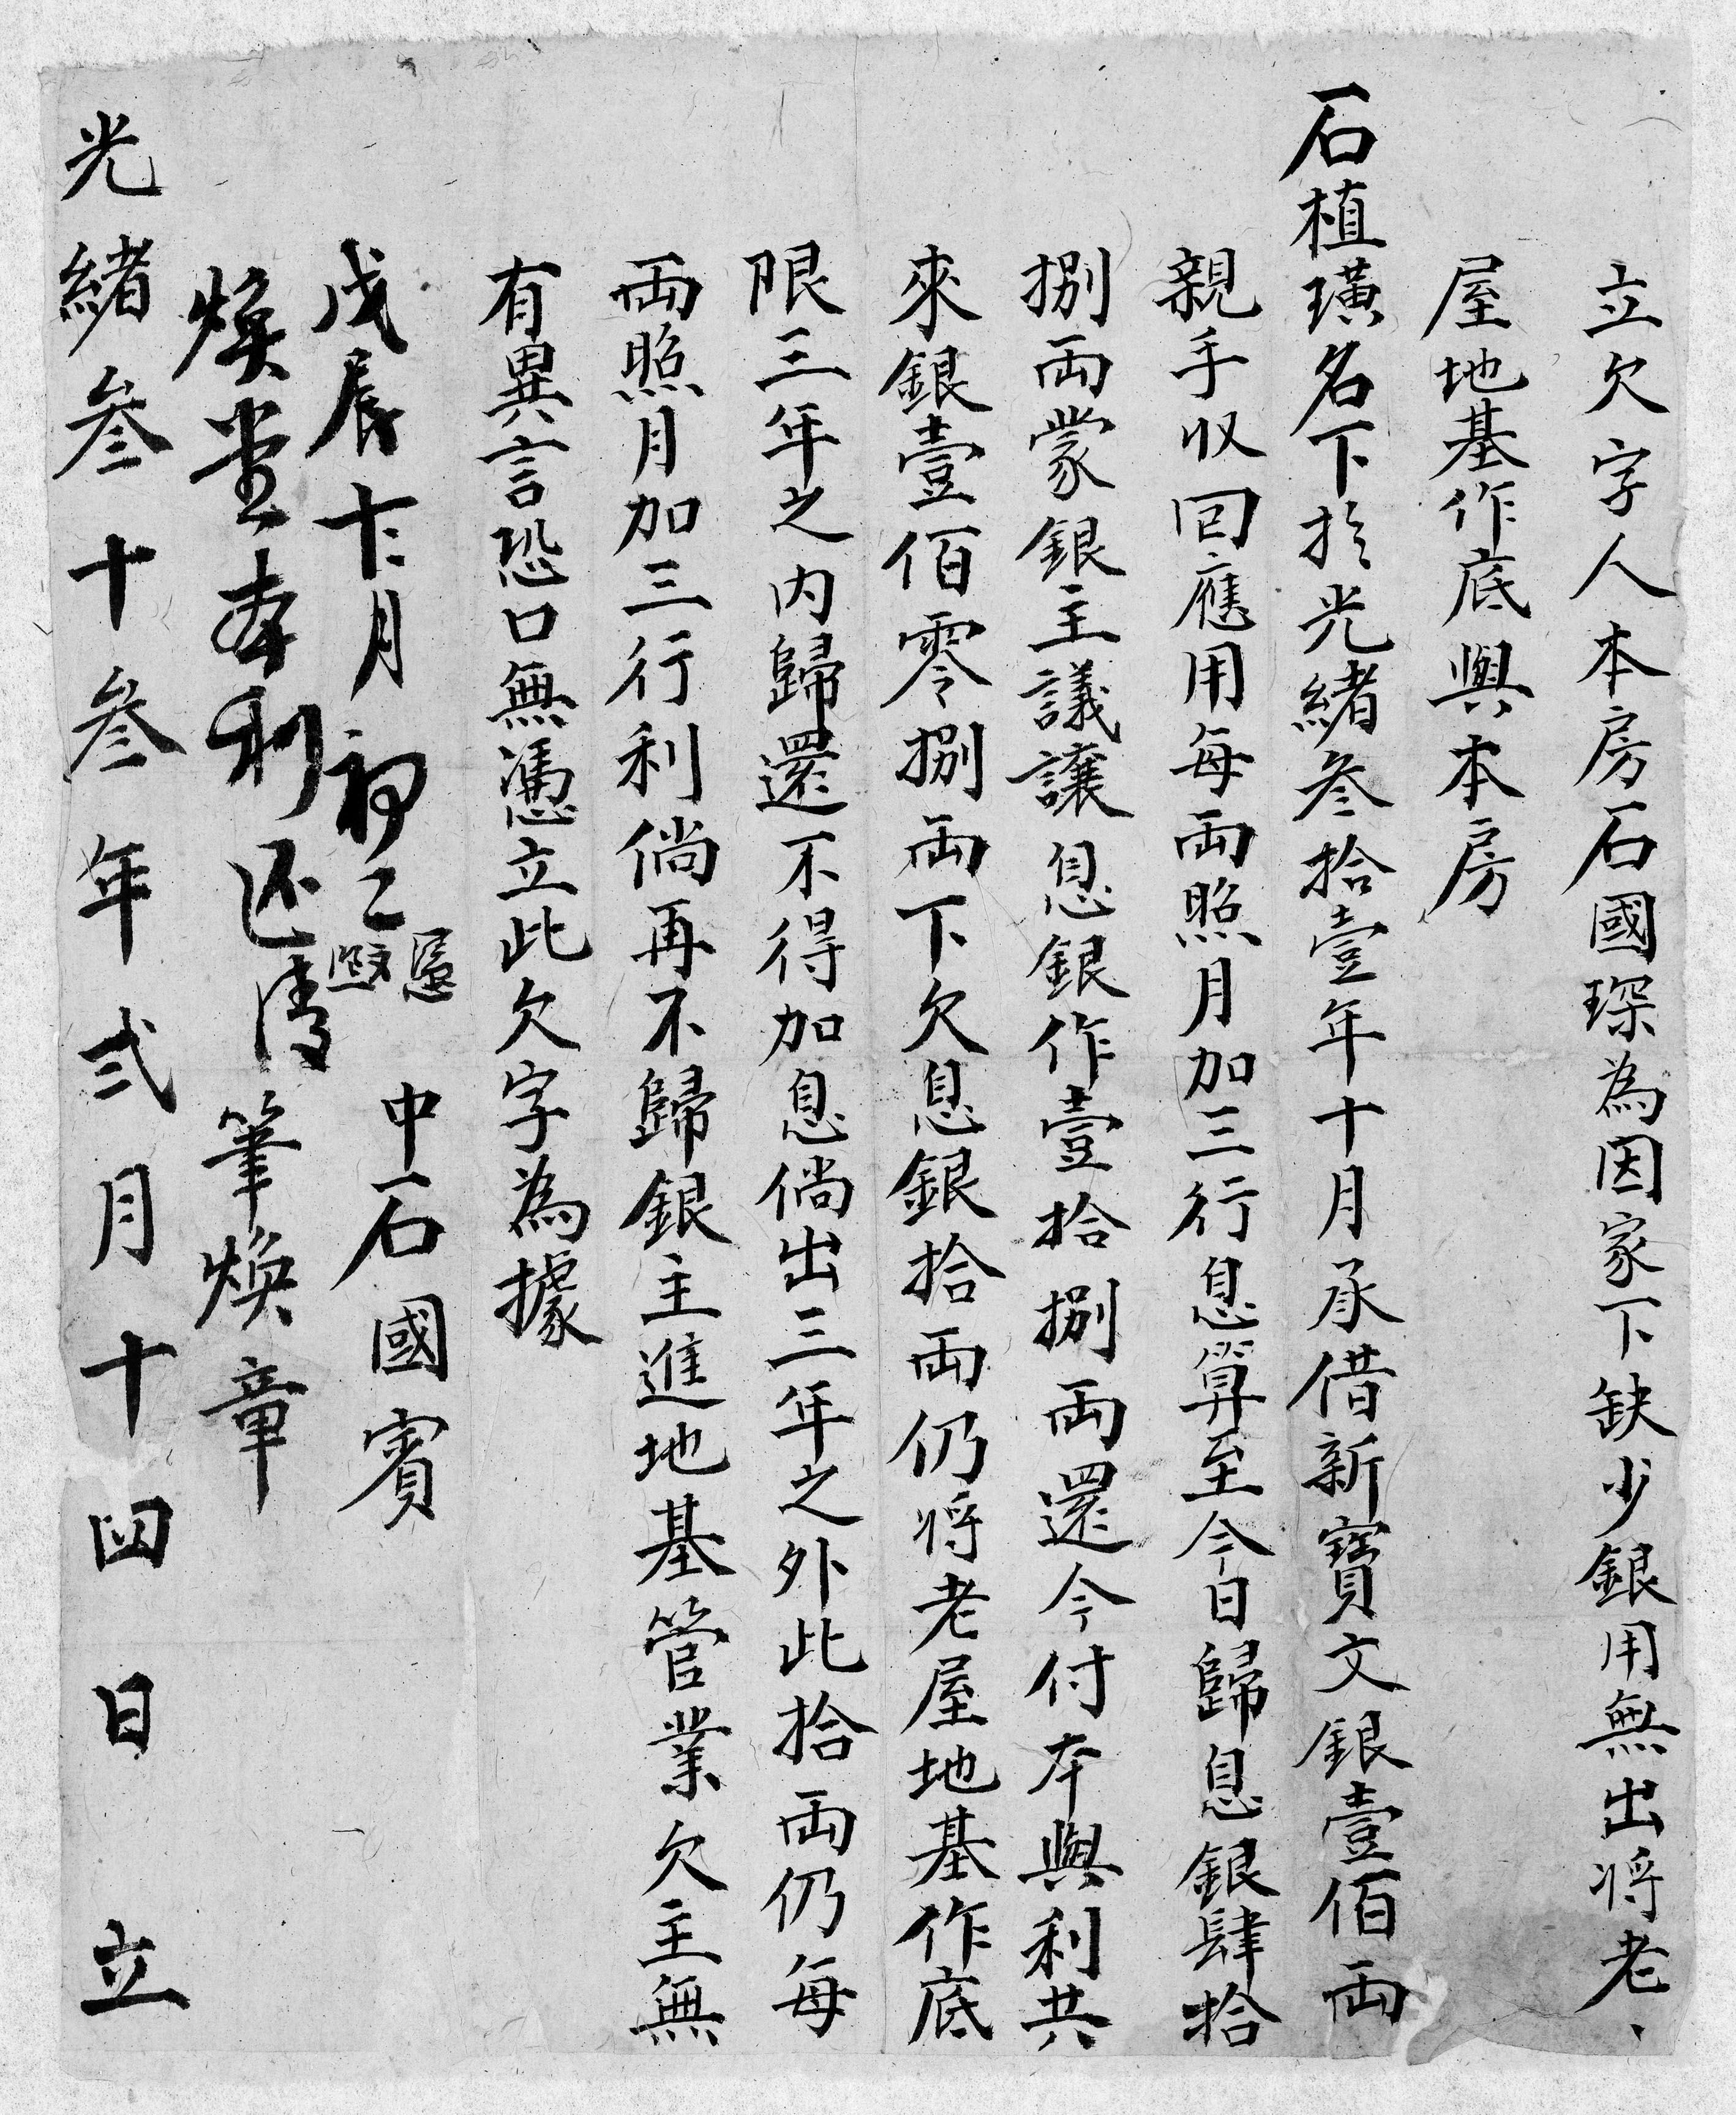 立欠字人本房石國琛為因家下缺少銀用無出将老、
屋地基作底與本房
石植璜名下於光緒叁拾壹年十月承借新寶文銀壹佰両
親手収回應用每両照月加三行息算至今日歸息銀肆拾
捌両蒙銀主議讓息銀作壹拾捌両還今付本與利共
來銀壹佰零捌両下欠息銀拾両仍将老屋地基作底
限三年之内歸還不得加息倘出三年之外此拾両仍每
両照月加三行利倘再不歸銀主進地基管業欠主無
有異言恐口無憑立此欠字為據
中石國賓
戊辰十二月初二
煥堂本利还清
筆煥章
光緒叁十叁年弍月十四日立